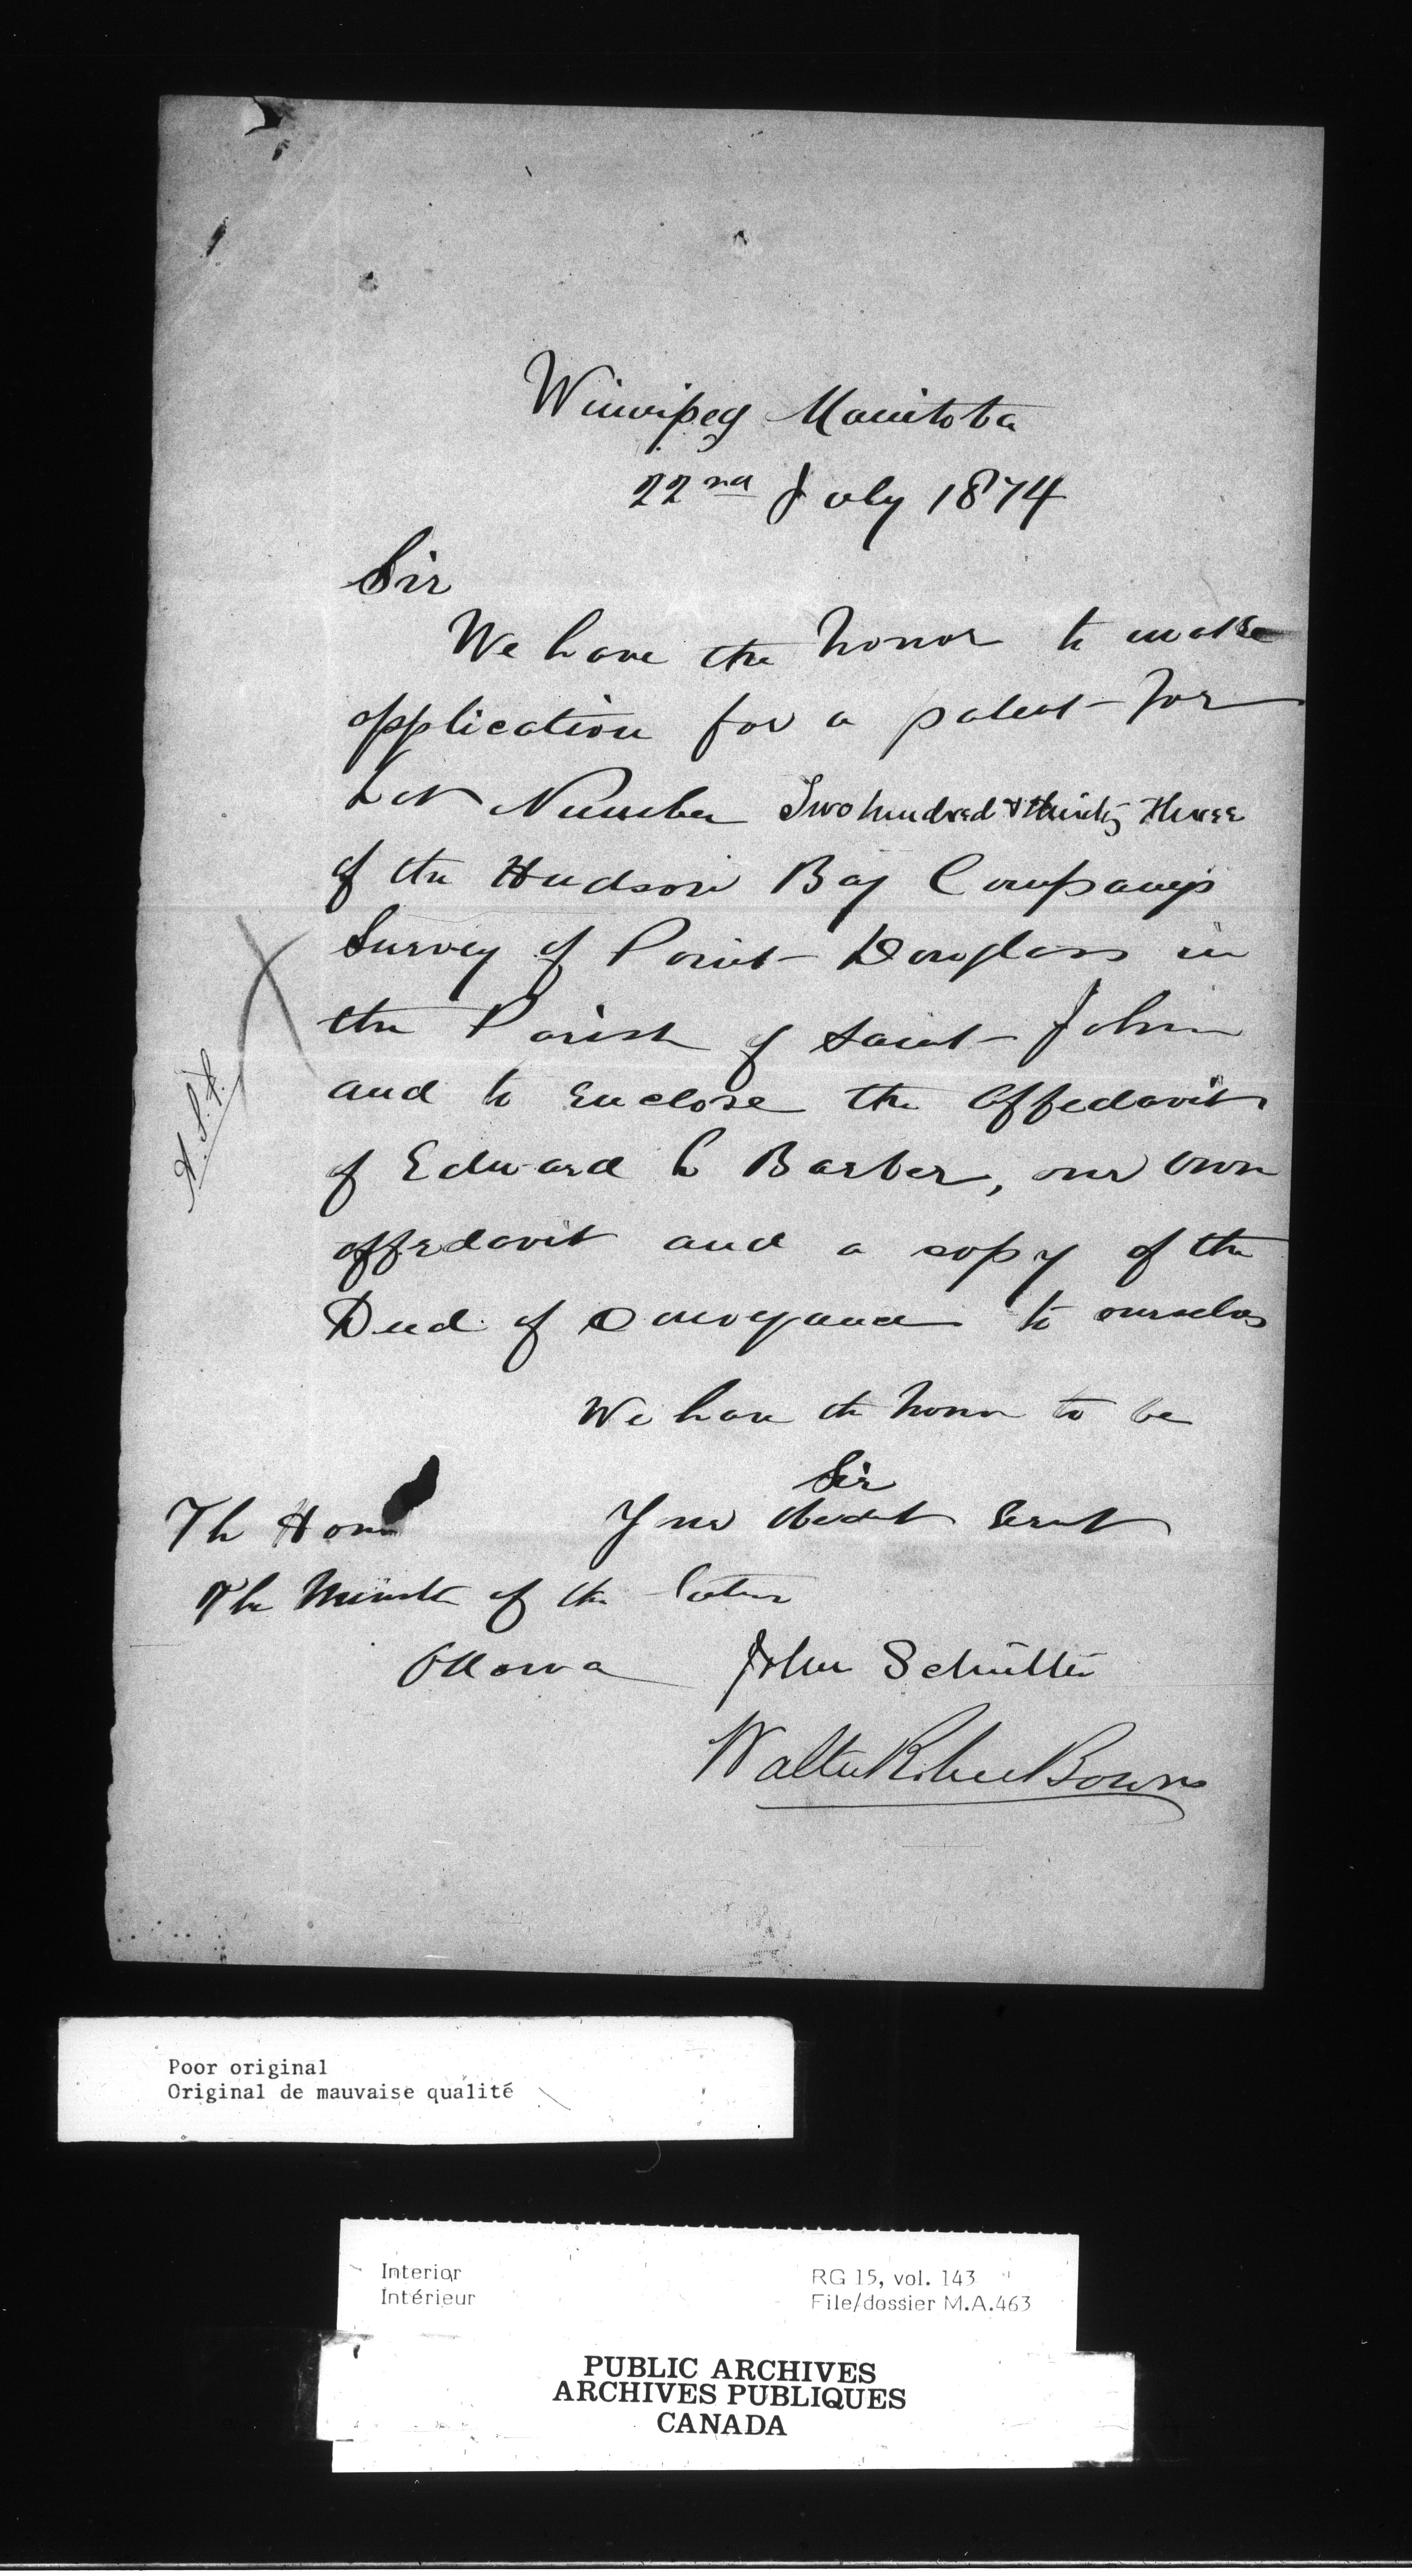 Winnipeg Manitoba
22nd July 1874
Sir
We have the honor to make
application for a patent for
Lot Number Two hundred & thirty three
of the Hudson Bay Companys
Survey of Point Douglass in
the Parish of Saint John
and to enclose the affedavit
of Edward L Barber, our own
affedavit and a copy of the
Deed of Conveyance to ourselves
We have the honor to be
Sir
Your Obedt Servt
The Hon
The Minister of the Interior
Ottawa
John Schultz
Walter Robert Bown
Poor original
Original de mauvaise qualité
Interior
Intérieur
RG 15, vol. 143
File/dossier M.A.463
PUBLIC ARCHIVES
ARCHIVES PUBLIQUES
CANADA